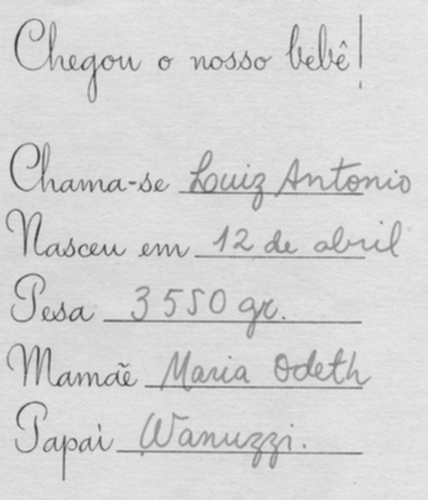 Chegou o nosso bebê!
Chama-se Luiz Antonio
Nasceu em 12 de abril
Pesa 3550 gr.
Mamãe Maria Odeth
Papai Wanuzzi.